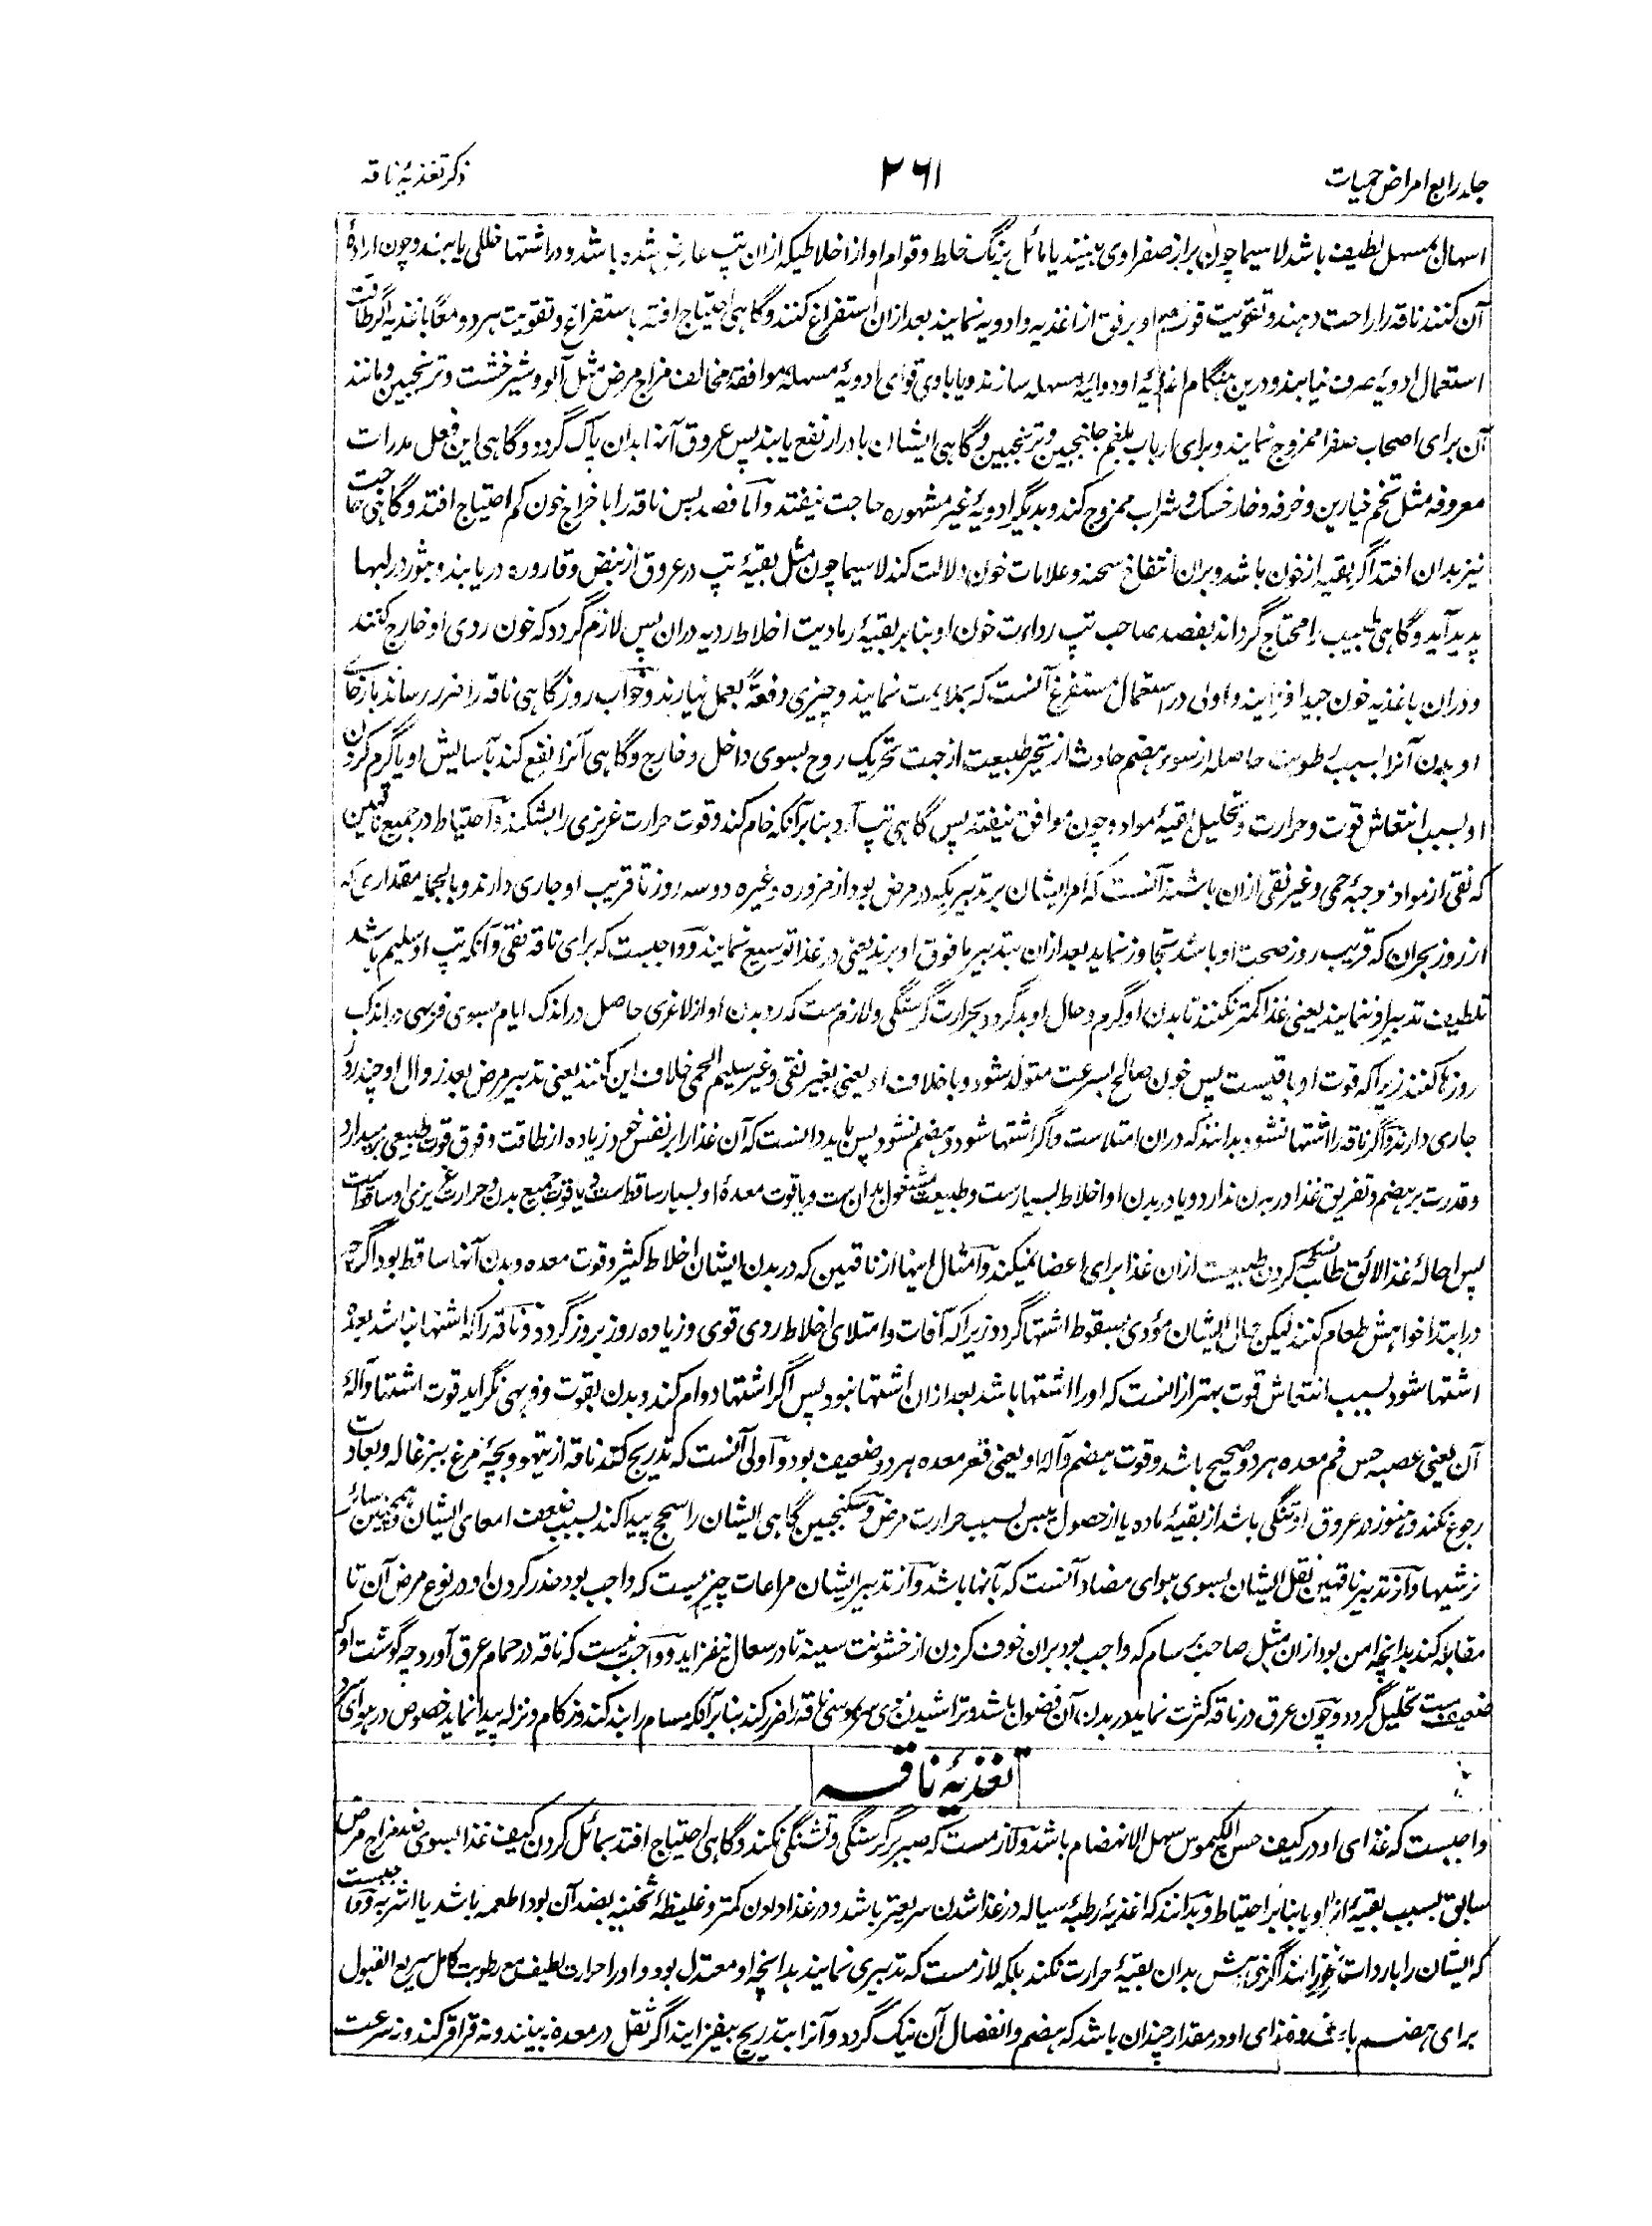 جلد رابع امراض حمیات
۲۶۱
ذکر تغذیهٔ ناقه
اسهال بمسهل لطیف باشد لا سیما چون براز صفراوی بینند یا مائل برنگ خلط و قوام او از اخلاطیکه ازان تپ عارض شده باشد و در اشتها خللی یابند و چون ارادهٔ
آن کنند ناقه را راحت دهند و تقویت قوت او برفق از اغذیه و ادویه نمایند بعد ازان استفراغ کنند و گاهی احتیاج افتد باستفراغ و تقویت هر دو معًا باغذیه اگر طاقت
استعمال ادویهٔ صرف نیابند و درین هنگام اغذیهٔ او دوائیه مسهله سازند و یا با وی قوای ادویهٔ مسهلهٔ موافقهٔ مخالف مزاج مرض مثل آلو و شیرخشت و ترنجبین و مانند
آن برای اصحاب صفرا ممزوج نمایند و برای ارباب بلغم جلنجبین و ترنجبین و گاهی ایشان بادرار نفع یابند پس عروق آنها بدان پاک گردد و گاهی این فعل مدرات
معروفه مثل تخم خیارین و خرفه و خارخسک و شراب ممزوج کند و بدیگر ادویهٔ غیر مشهوره حاجت نیفتد و اما فصد پس ناقه را باخراج خون کم احتیاج افتد و گاهی حاجت
نیز بدان افتد اگر بقیه از خون باشد و بران انتفاخ سحنه و علامات خون دلالت کند لا سیما چون مثل بقیهٔ تپ در عروق از نبض و قاروره دریابند و بثور در لبها
پدید آید و گاهی طبیب را محتاج گرداند بفصد صاحب تپ رداءت خون او بنا بر بقیهٔ رمادیت اخلاط ردیه دران پس لازم گردد که خون ردی او خارج کنند
و دران باغذیه خون جید افزایند و اولی در استعمال مستفرغ آنست که بملایمت نمایند و چیزی دفعةً بعمل نیارند و خواب روز گاهی ناقه را ضرر رساند بارخای
او بدن آنرا بسبب رطوبت حاصله از سوء هضم حادث از تحیر طبیعت از جهت تحریک روح بسوی داخل و خارج و گاهی آنرا نفع کند بآسایش او یا گرم کردن
او بسبب انتعاش قوت و حرارت و تحلیل بقیهٔ مواد و چون موافق نیفتد پس گاهی تپ آرد بنا بر آنکه خام کند و قوت حرارت غریزی را بشکند و احتیاط در جمیع ناقهین
که نقی از مواد موجبهٔ حمی و غیر نقی ازان باشند آنست که امر ایشان بر تدبیریکه در مرض بود از مزوره و غیره دو سه روز تا قریب او جاری دارند و بالجمله مقداری که
از روز بحران که قریب روز صحت او باشد تجاوز نماید بعد ازان بتدبیر ما فوق او برند یعنی در غذا توسیع نمایند و واجبست که برای ناقه نقی و آنکه تپ او سلیم باشد
تلطیف تدبیر او ننمایند یعنی غذا کمتر نکنند تا بدن او گرم و حال او بد گردد بحرارت گرسنگی و لازمست که رد بدن او از لاغری حاصل در اندک ایام بسوی فربهی در اندک
روزها کنند زیرا که قوت او باقیست پس خون صالح بسرعت متولد شود و باخلاف او یعنی بغیر نقی و غیر سلیم الحمی خلاف این کنند یعنی تدبیر مرض بعد زوال او چند روز
جاری دارند و اگر ناقه را اشتها نشود بدانند که دران امتلاست و اگر اشتها شود و هضم نشود پس باید دانست که آن غذا را بر نفس خود زیاده از طاقت و فوق قوت طبیعی بر میدارد
و قدرت بر هضم و تفریق غذا در بدن ندارد و یا در بدن او اخلاط بسیارست و طبیعت مشغول بدان ست و یا قوت معدهٔ او بسیار ساقط ست و یا قوت جمیع بدن و حرارت غریزی او ساقط ست
پس احالهٔ غذا لائق طلب کردن طبیعت ازان غذا برای اعضا نمیکند و امثال اینها از ناقهین که در بدن ایشان اخلاط کثیر و قوت معده و بدن آنها ساقط بود اگرچه
در ابتدا خواهش طعام کنند لیکن حال ایشان مؤدی بسقوط اشتها گردد زیرا که آفات و امتلای اخلاط ردی قوی و زیاده روز بروز گردد و ناقه را که اشتها نباشد بعدهٔ
اشتها شود بسبب انتعاش قوت بهتر ازانست که او را اشتها باشد بعد ازان اشتها نبود پس اگر اشتها دوام کند و بدن بقوت و فربهی نگراید قوت اشتها و آلهٔ
آن یعنی عصبه حس فم معده هر دو صحیح باشد و قوت هضم و آلهٔ او یعنی قعر معده هر دو ضعیف بود و اولی آنست که تدریج کند ناقه از تیهو و بچهٔ مرغ ببزغاله و بعادت
رجوع نکند و هنوز در عروق او تنگی باشد از بقیهٔ ماده یا از حصول یبس بسبب حرارت مرض و سکنجبین گاهی ایشان را سحج پیدا کند بسبب ضعف امعای ایشان و همچنین سائر
ترشیها و از تدبیر ناقهین نقل ایشان بسوی هوای مضاد آنست که بآنها باشد و از تدبیر ایشان مراعات چیزیست که واجب بود حذر کردن او در نوع مرض آن تا
مقابله کند بدانچه امن بود ازان مثل صاحب برسام که واجب بود بران خوف کردن از خشونت سینه تا در سعال نیفزاید و واجب نیست که ناقه در حمام عرق آورد چه گوشت او که
ضعیف ست تحلیل گردد و چون عرق در ناقه کثرت نماید در بدن آن فضول باشد و تراشیدن موی سر بموسی ناقه را ضرر کند بنا بر آنکه مسام را بند کند و زکام و نزله پیدا نماید خصوص در هوای سرد
تغذیهٔ ناقه
واجبست که غذای او در کیف حسن الکیموس سهل الانهضام باشد و لازمست که صبر بر گرسنگی و تشنگی نکند و گاهی احتیاج افتد بمائل کردن کیف غذا بسوی ضد مزاج مرض
سابق بسبب بقیهٔ اثر او یا بنا بر احتیاط و بدانند که اغذیهٔ رطبهٔ سیاله در غذا شدن سریعتر باشد و در غذا دادن کمتر و غلیظهٔ ثخینه بضد آن بود اطعمه باشد یا اشربه و واجبست
که ایشان را باردات نخورانند اگر نی‌هیش بدان بقیهٔ حرارت نکند بلکه لازمست که تدبیری نمایند بدانچه او معتدل بود و او را حرارت لطیف مع رطوبت کامل سریع القبول
برای هضم باشد و غذای او در مقدار چندان باشد که هضم و انفصال آن نیک گردد و آنرا بتدریج بیفزایند اگر ثقل در معده نبینند و نه قراقر کند و نه سرعت